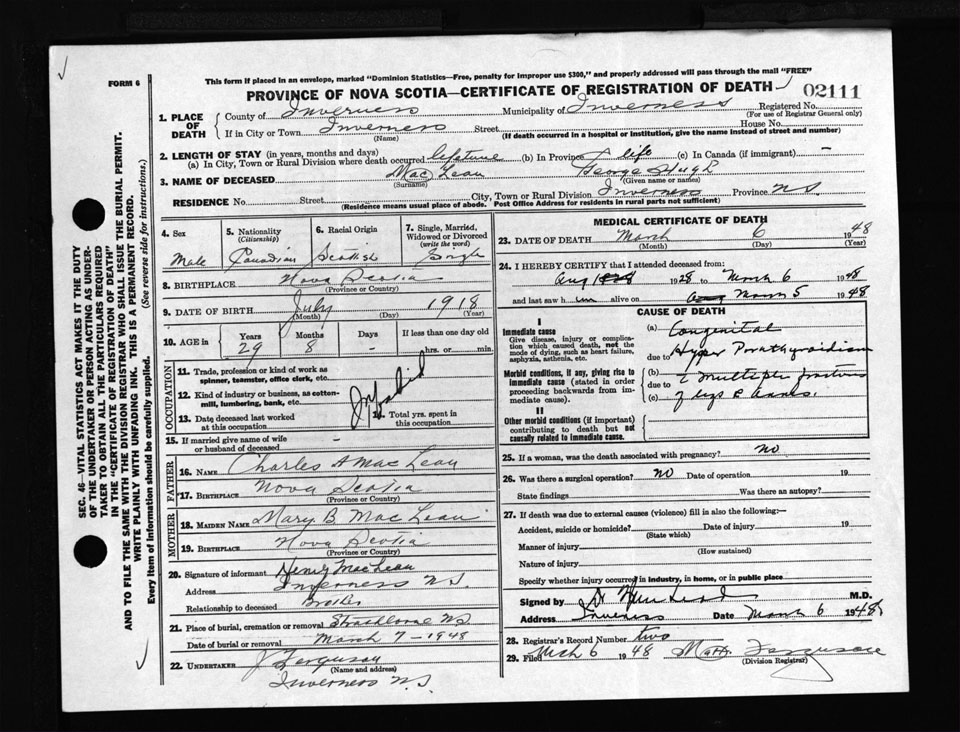 FORM 6
This form if placed in an envelope, marked "Dominion Statistics—Free, penalty for improper use $300," and properly addressed will pass through the mail "FREE"
PROVINCE OF NOVA SCOTIA—CERTIFICATE OF REGISTRATION OF DEATH
02111
1. PLACE OF DEATH
County of Inverness Municipality of Inverness Registered No.
(For use of Registrar General only)
If in City or Town Inverness Street House No.
(Name) (If death occurred in a hospital or institution, give the name instead of street and number)
2. LENGTH OF STAY (in years, months and days)
(a) In City, Town or Rural Division where death occurred lifetime (b) In Province life (c) In Canada (if immigrant) —
3. NAME OF DECEASED MacLean George Hugh
(Surname) (Given name or names)
RESIDENCE No. Street City, Town or Rural Division Inverness Province NS
(Residence means usual place of abode. Post Office Address for residents in rural parts not sufficient)
4. Sex 5. Nationality (Citizenship) 6. Racial Origin 7. Single, Married, Widowed or Divorced (write the word)
Male Canadian Scottish Single
8. BIRTHPLACE Nova Scotia
(Province or Country)
9. DATE OF BIRTH July 1918
(Month) (Day) (Year)
10. AGE in Years Months Days If less than one day old
29 8 - hrs. or min.
OCCUPATION
11. Trade, profession or kind of work as spinner, teamster, office clerk, etc.
Invalid
12. Kind of industry or business, as cotton-mill, lumbering, bank, etc.
13. Date deceased last worked at this occupation
14. Total yrs. spent in this occupation
15. If married give name of wife or husband of deceased -
FATHER
16. NAME Charles A MacLean
17. BIRTHPLACE Nova Scotia
(Province or Country)
MOTHER
18. MAIDEN NAME Mary B. MacLean
19. BIRTHPLACE Nova Scotia
(Province or Country)
20. Signature of informant Henry MacLean
Address Inverness N.S.
Relationship to deceased Brother
21. Place of burial, cremation or removal Strathlorne NS
Date of burial or removal March 7 - 1948
22. UNDERTAKER J Ferguson
(Name and address)
Inverness N.S.
MEDICAL CERTIFICATE OF DEATH
23. DATE OF DEATH March 6 1948
(Month) (Day) (Year)
24. I HEREBY CERTIFY that I attended deceased from:
Aug 1928 to March 6 1948
and last saw him alive on March 5 1948
CAUSE OF DEATH
I
Immediate cause
Give disease, injury or complication which caused death, not the mode of dying, such as heart failure, asphyxia, asthenia, etc.
(a) Congenital
due to Hyper Parathyroidism
Morbid conditions, if any, giving rise to immediate cause (stated in order proceeding backwards from immediate cause).
(b) multiple fractures
due to
(c) of legs & arms.
II
Other morbid conditions (if important) contributing to death but not causally related to immediate cause.
25. If a woman, was the death associated with pregnancy? no
26. Was there a surgical operation? no Date of operation 19
State findings Was there an autopsy?
27. If death was due to external causes (violence) fill in also the following:—
Accident, suicide or homicide? Date of injury 19
(State which)
Manner of injury
(How sustained)
Nature of injury
Specify whether injury occurred in industry, in home, or in public place
Signed by M.D.
Address Inverness Date March 6 1948
28. Registrar's Record Number two
29. Filed Mch 6 1948 Ferguson
(Division Registrar)
SEC. 46—VITAL STATISTICS ACT MAKES IT THE DUTY
OF THE UNDERTAKER OR PERSON ACTING AS UNDER-
TAKER TO OBTAIN ALL THE PARTICULARS REQUIRED
IN THE "CERTIFICATE OF REGISTRATION OF DEATH"
AND TO FILE THE SAME WITH THE DIVISION REGISTRAR WHO SHALL ISSUE THE BURIAL PERMIT.
WRITE PLAINLY WITH UNFADING INK. THIS IS A PERMANENT RECORD.
Every item of information should be carefully supplied. (See reverse side for instructions.)